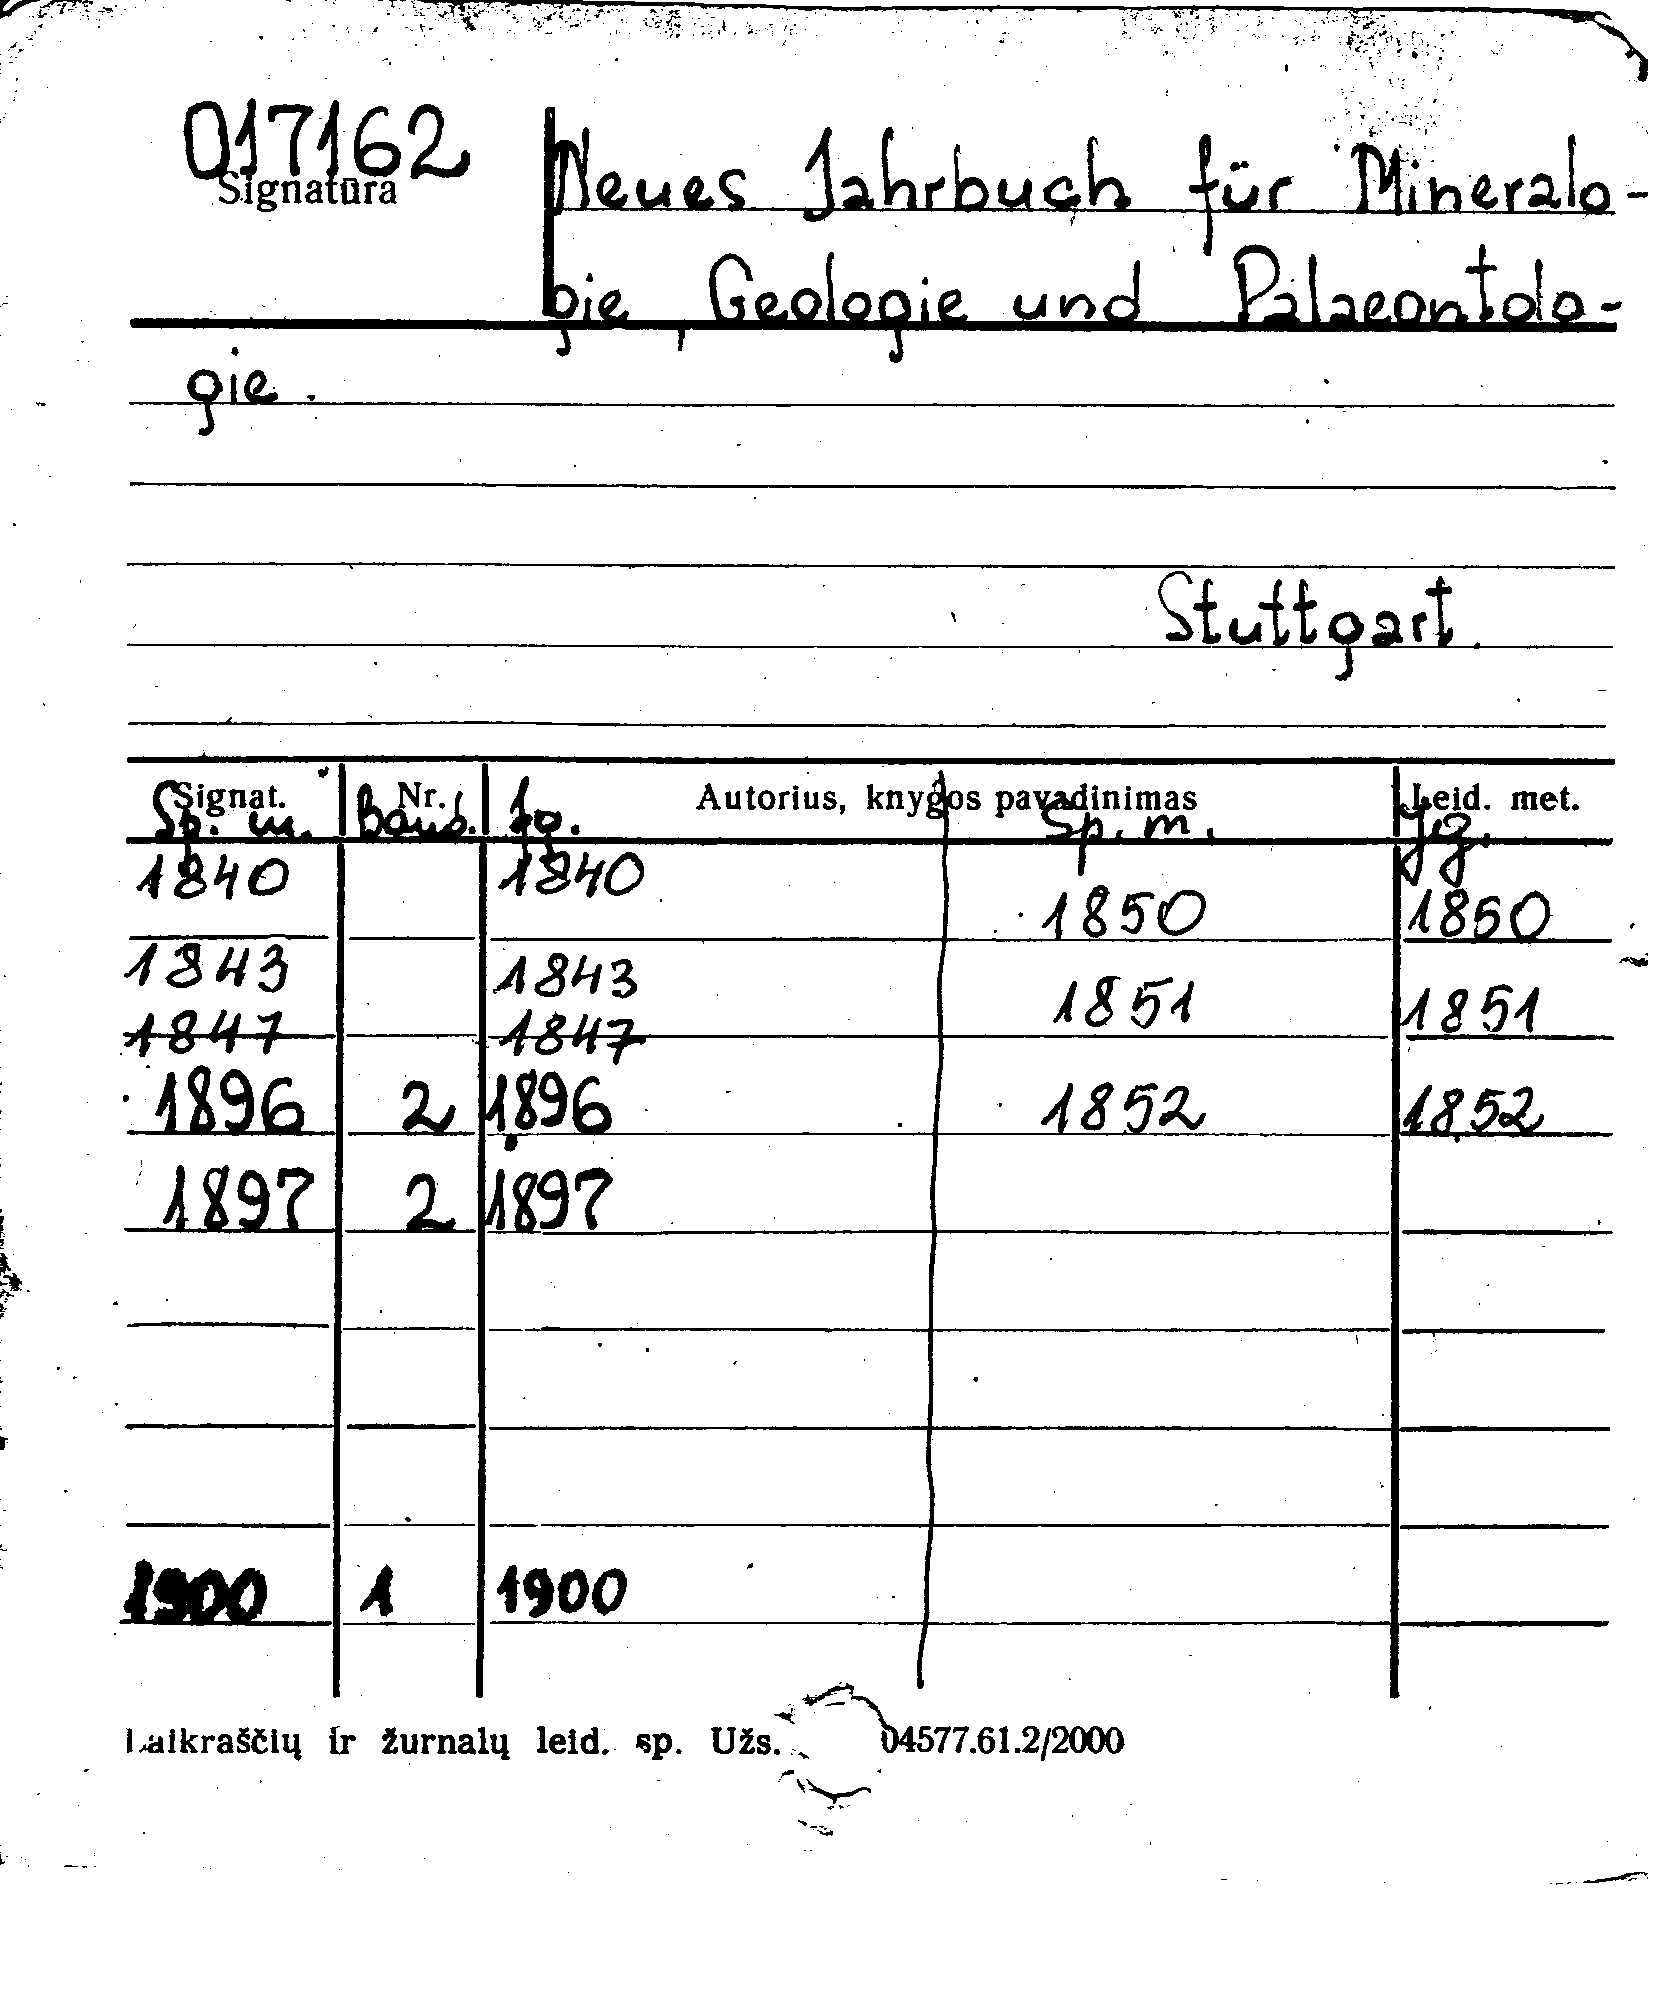 017162
Signatūra
Neues Jahrbuch für Mineralo-
gie, Geologie und Palaeontolo-
gie.
Stuttgart.
Signat. Nr. Autorius, knygos pavadinimas Leid. met.
Sp. m. Band. Jg. Sp. m. Jg.
1840 1840 1850 1850
1843 1843 1851 1851
1847 1847
1896 2 1896 1852 1852
1897 2 1897
1900 1 1900
Laikraščių ir žurnalų leid. sp. Užs. 04577.61.2/2000